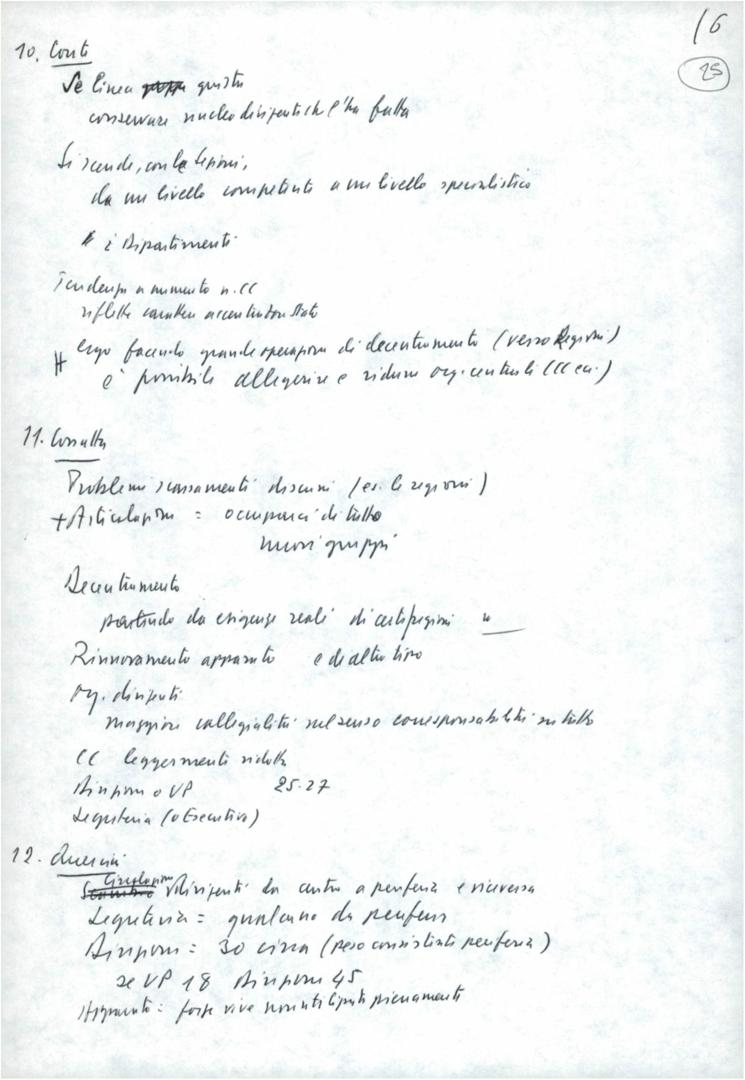 16
25
10. Conti
Se linea giusta
conservare nucleo dirigenti che l'ha fatta
Si scende, con le sezioni,
da un livello competente a un livello specialistico
i Dipartimenti
Tendenza a aumento n. CC
riflette carattere accentratore Stato
ergo facendo grande operazione di decentramento (verso Regioni)
è possibile alleggerire e ridurre org. centrali (CC ecc.)
11. Cossutta
Problemi scarsamenti discussi (es. le regioni)
+ Articolazione = occuparci di tutto
nuovi gruppi
Decentramento
partendo da esigenze reali di certe regioni
Rinnovamento apparato e di altro tipo
Org. dirigenti
maggiore collegialità nel senso corresponsabilità su tutto
CC leggermente ridotto
Direzione o UP 25-27
Segreteria (o Esecutivo)
12. Quercini
Circolazione dirigenti da centro a periferia e viceversa
Segreteria = qualcuno da periferia
Direzione = 30 circa (peso consistente periferia)
se UP 18 Direzione 45
Apparato = forze vive non utilizzate pienamente